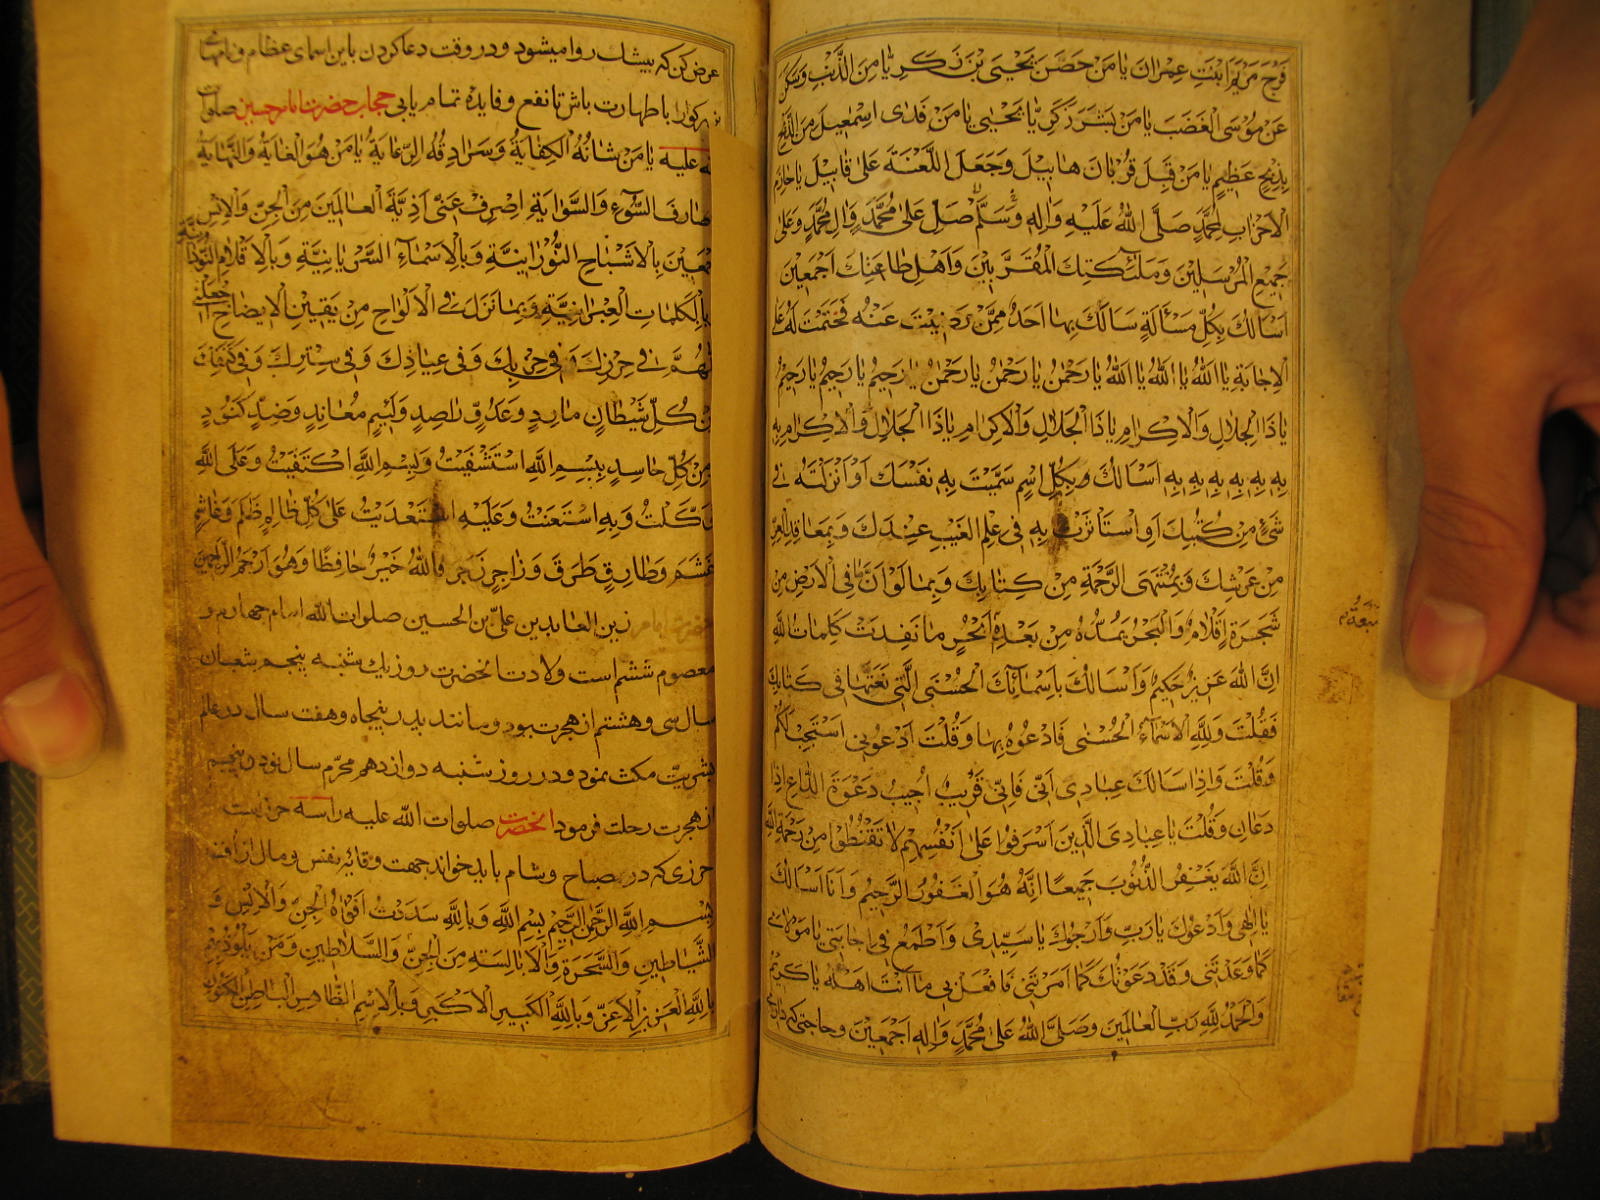 فَرْجَ مَرْيَمَ ابْنَتِ عِمْرانَ يا مَنْ حَصَّنَ يَحْيَى بْنَ زَكَرِيّا مِنَ الذَّنْبِ وَسَكَّنَ
عَنْ مُوسَى الْغَضَبَ يا مَنْ بَشَّرَ زَكَرِيّا بِيَحْيى يا مَنْ فَدى اِسْمعيلَ مِنَ الذَّبْحِ
بِذِبْحٍ عَظيمٍ يا مَنْ قَبِلَ قُرْبانَ هابيلَ وَجَعَلَ اللَّعْنَةَ عَلى قابيلَ يا هازِمَ
الْاَحْزابِ لِمُحَمَّدٍ صَلَّى اللهُ عَلَيْهِ وَالِهِ وَسَلَّم صَلِّ عَلى مُحَمَّدٍ وَالِ مُحَمَّدٍ وَعَلى
جَميعِ الْمُرْسَلينَ وَمَلئِكَتِكَ الْمُقَرَّبينَ وَاَهْلِ طاعَتِكَ اَجْمَعينَ
اَسْاَلُكَ بِكُلِّ مَسْاَلَةٍ سَاَلَكَ بِها اَحَدٌ مِمَّنْ رَضيتَ عَنْهُ فَحَتَمْتَ لَهُ عَلَى
الْاِجابَةِ يا اَللهُ يا اَللهُ يا اَللهُ يا رَحْمنُ يا رَحْمنُ يا رَحْمنُ يا رَحيمُ يا رَحيمُ يا رَحيمُ
يا ذَا الْجَلالِ وَالْاِكْرامِ يا ذَا الْجَلالِ وَالْاِكْرامِ يا ذَا الْجَلالِ وَالْاِكْرامِ بِهِ
بِهِ بِهِ بِهِ بِهِ بِهِ بِهِ اَسْاَلُكَ وَبِكُلِّ اسْمٍ سَمَّيْتَ بِهِ نَفْسَكَ اَوْ اَنْزَلْتَهُ في
شَئٍ مِنْ كُتُبِكَ اَوِ اسْتَاْثَرْتَ بِهِ في عِلْمِ الْغَيْبِ عِنْدَكَ وَبِمَعاقِدِ الْعِزِّ
مِنْ عَرْشِكَ وَبِمُنْتَهَى الرَّحْمَةِ مِنْ كِتابِكَ وَبِما لَوْ اَنَّ ما فِي الْاَرْضِ مِنْ
شَجَرَةٍ اَقْلامٌ وَالْبَحْرُ يَمُدُّهُ مِنْ بَعْدِهِ اَبْحُرٍ ما نَفِدَتْ كَلِماتُ اللهِ
سَبْعَةُ
اِنَّ اللهَ عَزيزٌ حَكيمٌ وَاَسْاَلُكَ بِاَسْمائِكَ الْحُسْنَى الَّتي نَعَتَّها في كِتابِكَ
فَقُلْتَ وَلِلّهِ الْاَسْماءُ الْحُسْنى فَادْعُوهُ بِها وَقُلْتَ اُدْعُوني اَسْتَجِبْ لَكُمْ
وَقُلْتَ وَاِذا سَاَلَكَ عِبادي عَنّي فَاِنّي قَريبٌ اُجيبُ دَعْوَةَ الدّاعِ اِذا
دَعانِ وَقُلْتَ يا عِبادِيَ الَّذينَ اَسْرَفُوا عَلى اَنْفُسِهِمْ لا تَقْنَطُوا مِنْ رَحْمَةِ اللهِ
اِنَّ اللهَ يَغْفِرُ الذُّنُوبَ جَميعًا اِنَّهُ هُوَ الْغَفُورُ الرَّحيمُ وَاَنَا اَسْاَلُكَ
يا اِلهي وَاَدْعُوكَ يا رَبِّ وَاَرْجُوكَ يا سَيِّدي وَاَطْمَعُ في اِجابَتي يا مَوْلايَ
كَما وَعَدْتَني وَقَدْ دَعَوْتُكَ كَما اَمَرْتَني فَافْعَلْ بي ما اَنْتَ اَهْلُهُ يا كَريمُ
وَالْحَمْدُ لِلّهِ رَبِّ الْعالَمينَ وَصَلَّى اللهُ عَلى مُحَمَّدٍ وَالِهِ اَجْمَعينَ وحاجتى كه دارى
عرض كن كه بيشك روا ميشود و در وقت دعا كردن باين اسماى عظام و دعاهاى
بزركوار با طهارت باش تا نفع و فايده تمام يابى حجاب حضرت امام حسين صلوات
الله عليه يا مَنْ شَانُهُ الْكِفايَةُ وَسَرادِقُهُ الرِّعايَةُ يا مَنْ هُوَ الْغايَةُ وَالنِّهايَةُ
يا صارِفَ السُّوءِ وَالسَّوايَةِ اِصْرِفْ عَنّي اَذِيَّةَ الْعالَمينَ مِنَ الْجِنِّ وَالْاِنْسِ
اَجْمَعينَ بِالْاَشْباحِ النُّورانِيَّةِ وَبِالْاَسْماءِ السِّرْيانِيَّةِ وَبِالْاَقْلامِ الْيُونانِيَّةِ
وَبِالْكَلِماتِ الْعِبْرانِيَّةِ وَبِما نَزَلَ فِي الْاَلْواحِ مِنْ يَقينِ الْايضاحِ اجْعَلْني
اللّهُمَّ في حِرْزِكَ وَفي حِزْبِكَ وَفي عِياذِكَ وَفي سِتْرِكَ وَفي كَنَفِكَ
مِنْ كُلِّ شَيْطانٍ مارِدٍ وَعَدُوٍّ راصِدٍ وَلَئيمٍ مُعانِدٍ وَضِدٍّ كَنُودٍ
وَمِنْ كُلِّ حاسِدٍ بِبِسْمِ اللهِ اسْتَشْفَيْتُ وَبِسْمِ اللهِ اكْتَفَيْتُ وَعَلَى اللهِ
تَوَكَّلْتُ وَبِهِ اسْتَعَنْتُ وَعَلَيْهِ اسْتَعْدَيْتُ عَلى كُلِّ ظالِمٍ ظَلَمَ وَغاشِمٍ
غَشَمَ وَطارِقٍ طَرَقَ وَزاجِرٍ زَجَرَ فَاللهُ خَيْرٌ حافِظًا وَهُوَ اَرْحَمُ الرّاحِمينَ
حضرت امام زين العابدين علىّ بن الحسين صلوات الله امام چهارم و
معصوم ششم است ولادت انحضرت روز يك شنبه پنجم شعبان
سال سى و هشتم از هجرت بود و مانند پدر پنجاه و هفت سال در عالم
بشريّت مكث نمود و در روز شنبه دوازدهم محرّم سال نود و پنجم
از هجرت رحلت فرمود انحضرت صلوات الله عليه راسه حرز است
حرزى كه در صباح و شام بايد خواند جهت وقايه نفس و مال از آفت
بِسْمِ اللهِ الرَّحْمنِ الرَّحيمِ بِسْمِ اللهِ وَبِاللهِ سَدَدْتُ اَفْواهَ الْجِنِّ وَالْاِنْسِ وَ
الشَّياطينِ وَالسَّحَرَةِ وَالْاَبالِسَةِ مِنَ الْجِنِّ وَالسَّلاطينِ وَمَنْ يَلُوذُ بِهِمْ
بِاللهِ الْعَزيزِ الْاَعَزِّ وَبِاللهِ الْكَبيرِ الْاَكْبَرِ وَبِالْاِسْمِ الظّاهِرِ الْباطِنِ الْمَكْنُونِ